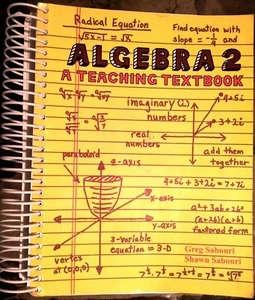 Radical Equation
√5x-1 = √x
Find equation with
slope = -1/9 and
ALGEBRA 2
A TEACHING TEXTBOOK
imaginary (i)
numbers
real
numbers
4+5i
3+2i
add them
together
paraboloid
z-axis
x-axis
y-axis
4+5i + 3+2i = 7+7i
a²+3ab+2b²
(a+2b)(a+b)
factored form
3-variable
equation = 3-D
vertex
at (0,0,0)
Greg Sabouri
Shawn Sabouri